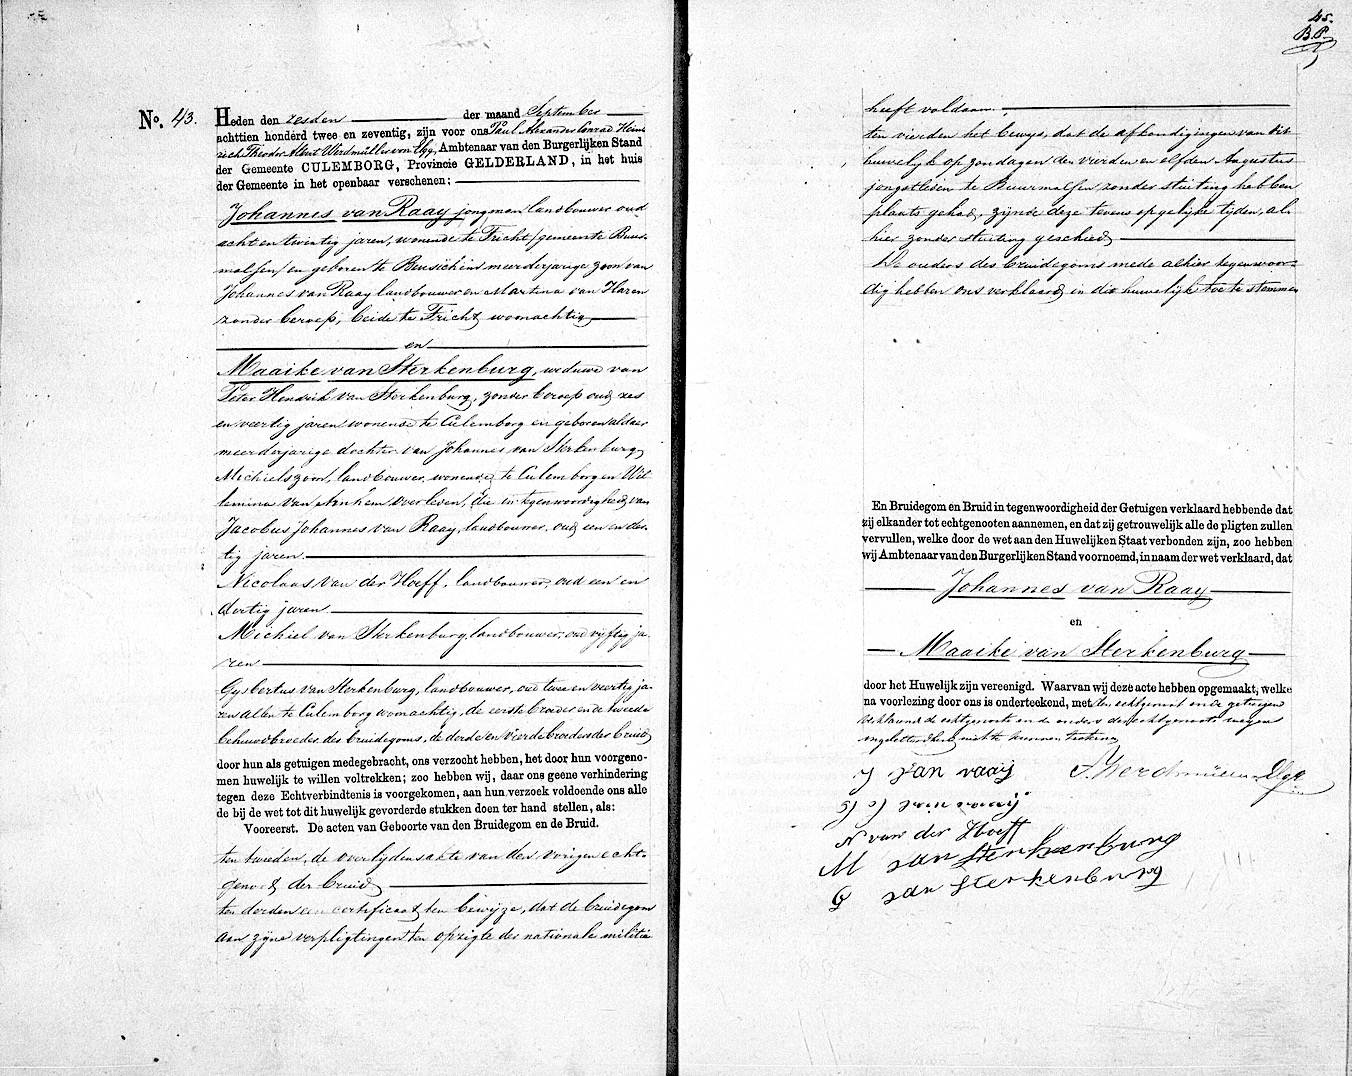 No. 43.
Heden den zesden der maand September
achttien honderd twee en zeventig, zijn voor ons Paul Alexander Conrad Hein-
rich Theodor Albert Werdmüller von Elgg, Ambtenaar van den Burgerlijken Stand
der Gemeente CULEMBORG, Provincie GELDERLAND, in het huis
der Gemeente in het openbaar verschenen:
Johannes van Raay jongman landbouwer oud
acht en twintig jaren, wonende te Tricht /gemeente Buur-
malsen/ en geboren te Beusichem meerderjarige zoon van
Johannes van Raay landbouwer en Martina van Haren
zonder beroep, beide te Tricht woonachtig
en
Maaike van Sterkenburg, weduwe van
Peter Hendrik van Sterkenburg, zonder beroep oud zes
en veertig jaren wonende te Culemborg en geboren aldaar
meerderjarige dochter van Johannes van Sterkenburg
Michielszoon, landbouwer, wonende te Culemborg en Wil-
lemina van Arnhem overleden, die in tegenwoordigheid van
Jacobus Johannes van Raay, landbouwer, oud een en der-
tig jaren
Nicolaas van der Hoeff, landbouwer, oud een en
dertig jaren
Michiel van Sterkenburg, landbouwer, oud vijftig ja-
ren
Gysbertus van Sterkenburg, landbouwer, oud twee en veertig ja-
ren allen te Culemborg woonachtig, de eerste broeder en de tweede
behuwdbroeder des bruidegoms, de derde en vierde broeders der bruid
door hun als getuigen medegebracht, ons verzocht hebben, het door hun voorgeno-
men huwelijk te willen voltrekken; zoo hebben wij, daar ons geene verhindering
tegen deze Echtverbindtenis is voorgekomen, aan hun verzoek voldoende ons alle
de bij de wet tot dit huwelijk gevorderde stukken doen ter hand stellen, als:
Vooreerst. De acten van Geboorte van den Bruidegom en de Bruid.
ten tweeden, de overlijdensakte van den vorigen echt-
genoot der bruid
ten derden een certificaat ten bewijze, dat de bruidegom
aan zijne verpligtingen ten opzigte der nationale militie
45.
B.P.
heeft voldaan.
ten vierden het bewys, dat de afkondigingen van dit
huwelijk op zondagen den vierden en elfden Augustus
jongstleden te Buurmalsen zonder stuiting hebben
plaats gehad, zijnde deze tevens op gelijke tijden, al-
hier zonder stuiting geschied
De ouders des bruidegoms mede alhier tegenwoor-
dig hebben ons verklaard in dit huwelijk toe te stemmen
En Bruidegom en Bruid in tegenwoordigheid der Getuigen verklaard hebbende dat
zij elkander tot echtgenooten aannemen, en dat zij getrouwelijk alle de pligten zullen
vervullen, welke door de wet aan den Huwelijken Staat verbonden zijn, zoo hebben
wij Ambtenaar van den Burgerlijken Stand voornoemd, in naam der wet verklaard, dat
Johannes van Raay
en
Maaike van Sterkenburg
door het Huwelijk zijn vereenigd. Waarvan wij deze acte hebben opgemaakt, welke
na voorlezing door ons is onderteekend, met den echtgenoot en de getuigen
verklarende de echtgenoote en de ouders des echtgenoots wegens
ongeletterdheid niet te kunnen teekenen
J van raaij
A. Werdmüller v Elgg
J J van raaij
N van der Hoeff
M van Sterkenburg
G van Sterkenburg